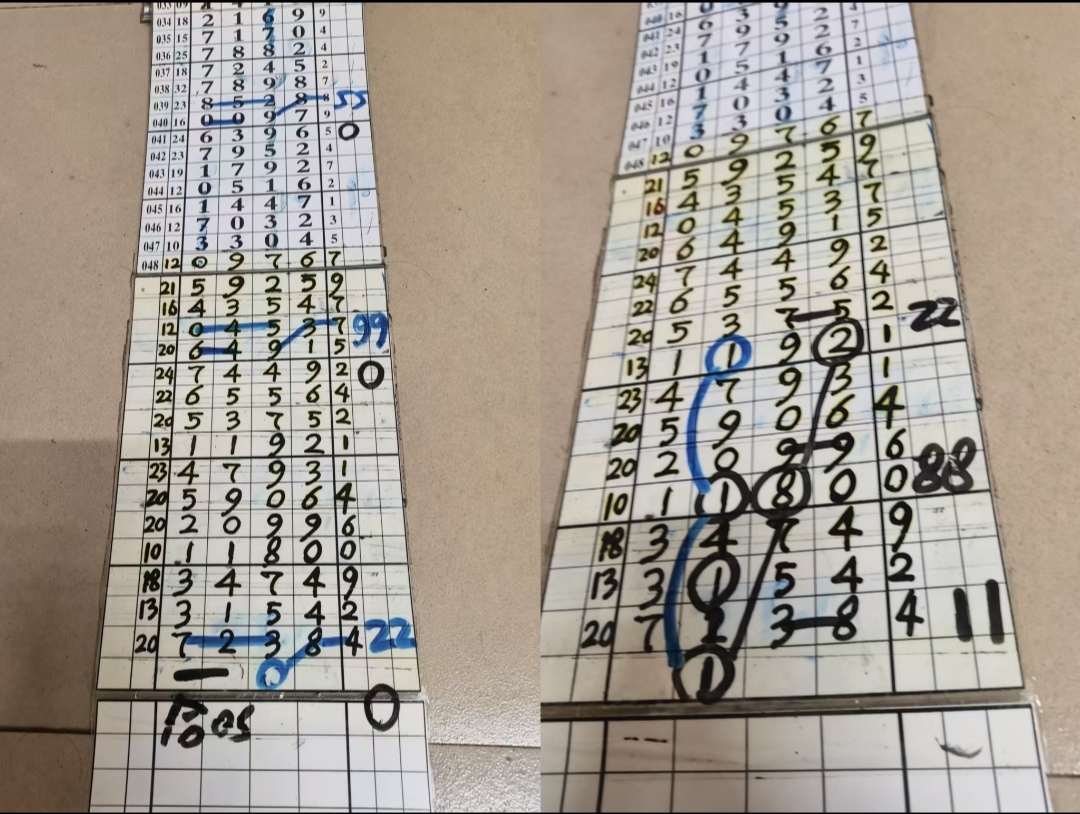 034 18 2 1 6 9 9
035 15 7 1 7 0 4
036 25 7 8 8 2 4
037 18 7 2 4 5 2
038 32 7 8 9 8 7
039 23 8 5 2 8 8 55
040 16 0 0 9 7 9
041 24 6 3 9 6 5 0
042 23 7 9 5 2 4
043 19 1 7 9 2 7
044 12 0 5 1 6 2
045 16 1 4 4 7 1
046 12 7 0 3 2 3
047 10 3 3 0 4 5
048 12 0 9 7 6 7
21 5 9 2 5 9
16 4 3 5 4 7
12 0 4 5 3 7 99
20 6 4 9 1 5
24 7 4 4 9 2 0
22 6 5 5 6 4
20 5 3 7 5 2
13 1 1 9 2 1
23 4 7 9 3 1
20 5 9 0 6 4
20 2 0 9 9 6
10 1 1 8 0 0
18 3 4 7 4 9
13 3 1 5 4 2
20 7 2 3 8 4 22
0
0
041 24 6 3 9 6
042 23 7 9 5 2 7
043 19 1 7 9 2
044 12 0 5 1 6 2
045 16 1 4 4 7 1
046 12 7 0 3 2 3
047 10 3 3 0 4 5
048 12 0 9 7 6 7
21 5 9 2 5 9
16 4 3 5 4 7
12 0 4 5 3 7
20 6 4 9 1 5
24 7 4 4 9 2
22 6 5 5 6 4
20 5 3 7 5 2 22
13 1 1 9 2 1
23 4 7 9 3 1
20 5 9 0 6 4
20 2 0 9 9 6
10 1 1 8 0 0 88
18 3 4 7 4 9
13 3 1 5 4 2
20 7 2 3 8 4 11
1